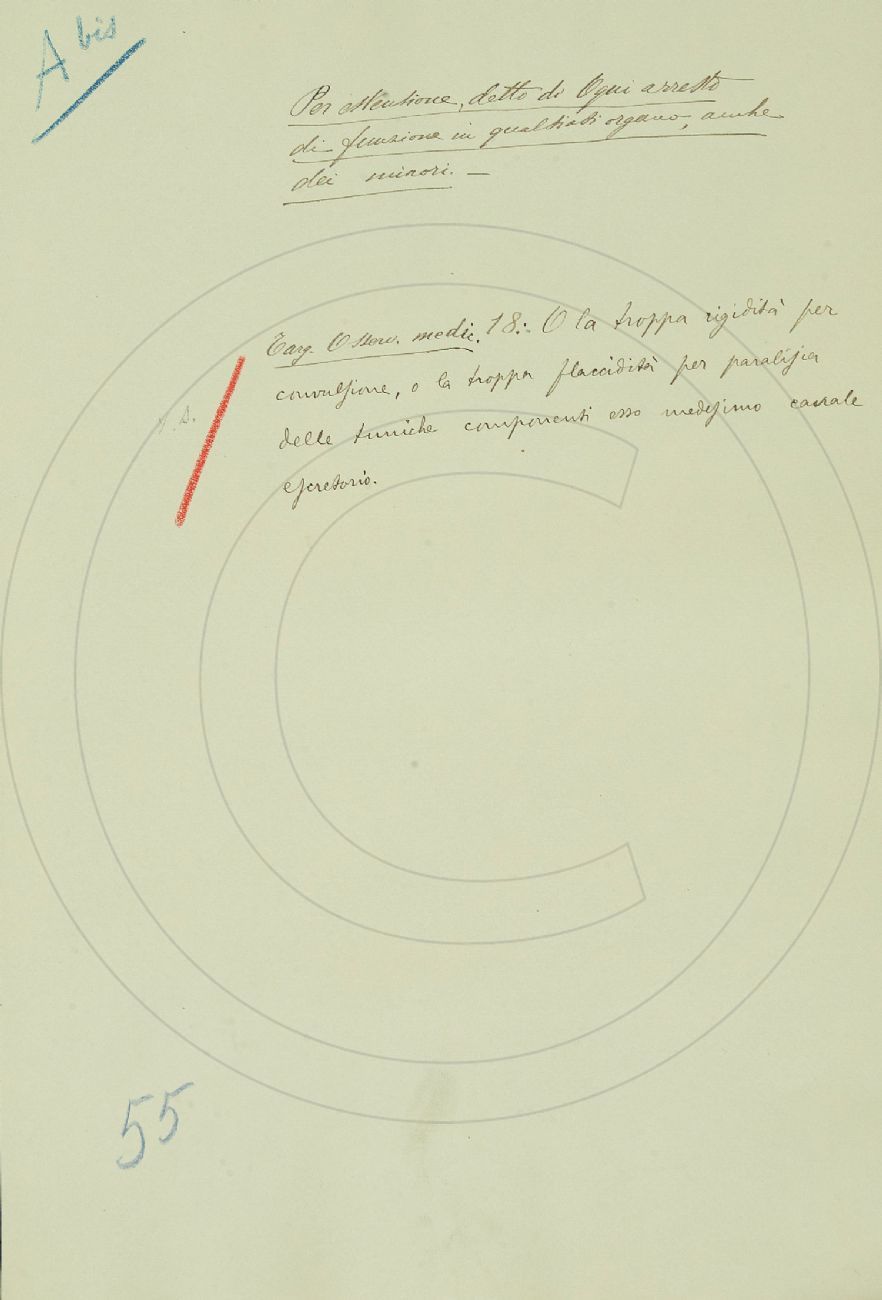 A bis
Per estensione, detto di Ogni arresto
di funzione in qualsiasi organo, anche
dei minori. —
Targ. Osserv. medic. 18: O la troppa rigidità per
convulsione, o la troppa flaccidità per paralisia
delle tuniche componenti esso medesimo canale
escretorio.
55